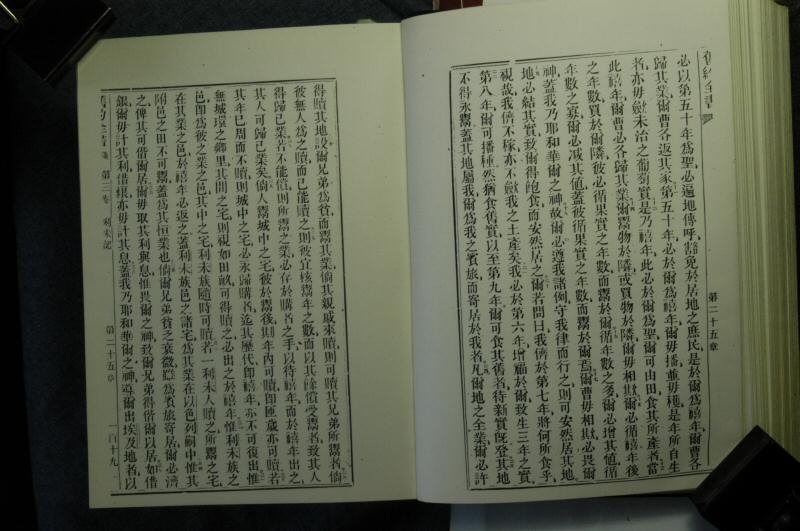 舊約全書
第二十五章
必以第五十年爲聖必遍地傳呼豁免於居地之庶民是於爾爲禧年爾曹各
歸其業爾曹各返其家第五十年必於爾爲禧年爾毋播並毋穫是年所自生
者亦毋斂未治之葡萄實是乃禧年此必於爾爲聖爾可由田食其所產者當
此禧年爾曹必各歸其業爾鬻物於隣或買物於隣爾毋相欺爾必循禧年後
之年數買於爾隣彼必循果實之年數而鬻於爾循年數之多爾必增其値循
年數之寡爾必減其値蓋彼循果實之年數而鬻於爾焉爾曹毋相欺必畏爾
神蓋我乃耶和華爾之神故爾必遵我諸例守我律而行之則可安然居其地
地必結其實致爾得飽食而安然居之爾若問曰我儕於第七年將何所食乎
視哉我儕不稼亦不斂我之土產矣我必於第六年增福於爾致生三年之實
第八年爾可播種然猶食舊實以至第九年爾可食其舊者待新實旣登其地
不得永鬻蓋其地屬我爾爲我之賓旅而寄居於我者凡爾地之全業爾必許
得贖其地設爾兄弟爲貧而鬻其業倘其親戚來贖則可贖其兄弟所鬻者倘
彼無人爲之贖而已能贖之則彼宜核鬻年之數而以其餘償受鬻者致其人
得歸已業若不能償則所鬻之業必存於購者之手以待禧年而於禧年出之
其人可歸已業矣倘人鬻城中之宅彼於鬻後其年內可贖卽匝歲亦可贖若
其年已周而不贖則城中之宅必永歸購者迄其歷代卽禧年亦不可復出惟
無城環之鄉里其間之宅則視如田畝可得贖之必出之於禧年惟利未族之
邑卽爲彼之業之邑其中之宅利未族隨時可贖若一利未人贖之所鬻之宅
在其業之邑於禧年必返之蓋利未族邑之諸宅爲其業在以色列嗣中惟其
附邑之田不可鬻蓋爲其恒業也倘爾兄弟貧乏衰微雖爲賓旅寄居爾必濟
之俾其可偕爾居爾毋取其利與息惟畏爾之神致爾兄弟得偕爾以居如借
銀爾毋計其利借糧亦毋計其息蓋我乃耶和華爾之神導爾出埃及地者以
第三卷 利未記
第二十五章
一百十九